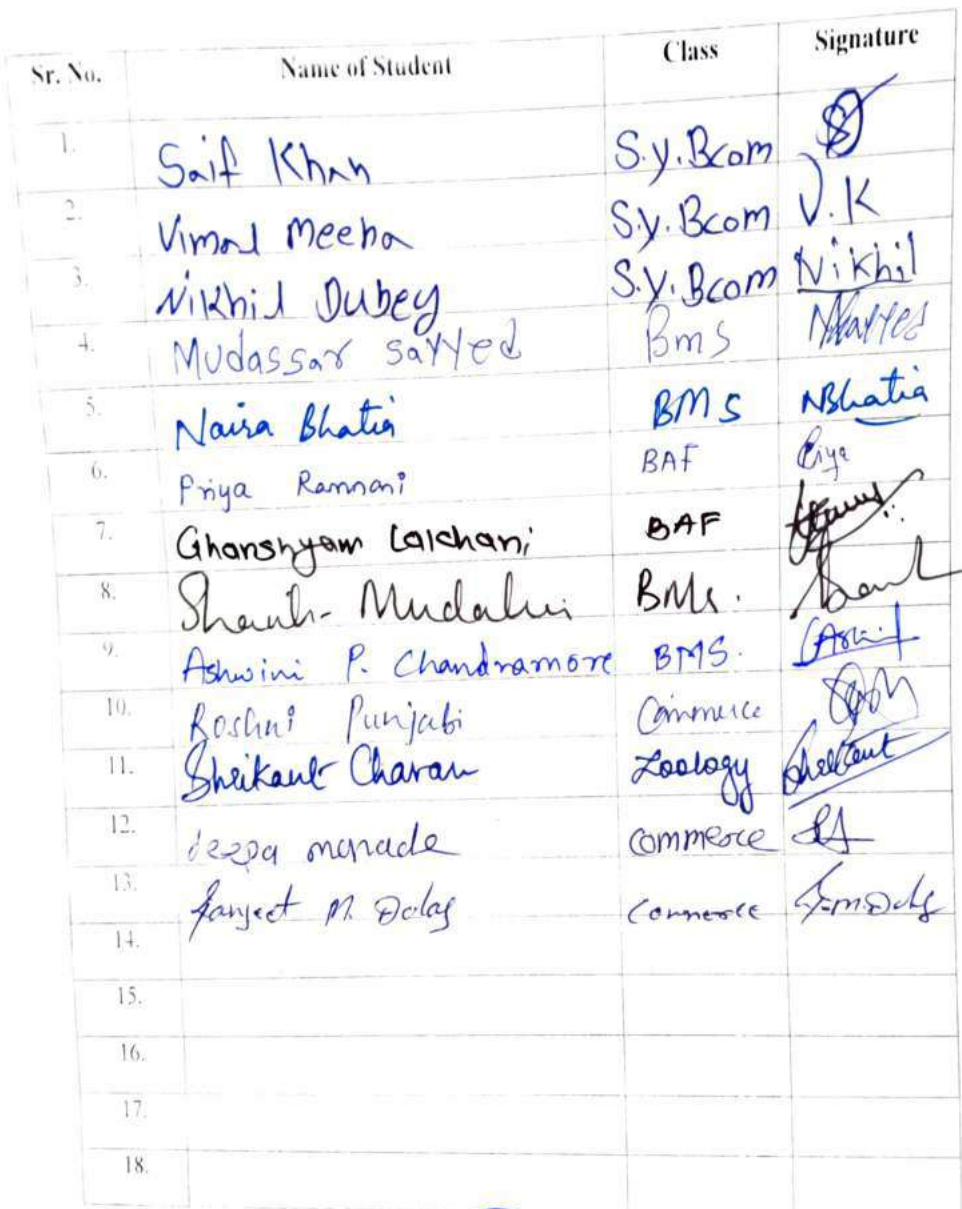 Sr. No. Name of Student Class Signature
1. Saif Khan S.y.Bcom
2. Vimal Meena S.y.Bcom V.K
3. Nikhil Dubey S.y.Bcom Nikhil
4. Mudassar sayyed Bms
5. Naira Bhatia BMS NBhatia
6. Priya Ramnani BAF Priya
7. Ghanshyam Lalchani BAF
8. BMS.
9. Ashwini P. Chandramore BMS.
10. Roshni Punjabi Commerce
11. Shrikant Charan Zoology
12. deepa manade commerce
13. M. commerce
14.
15.
16.
17.
18.